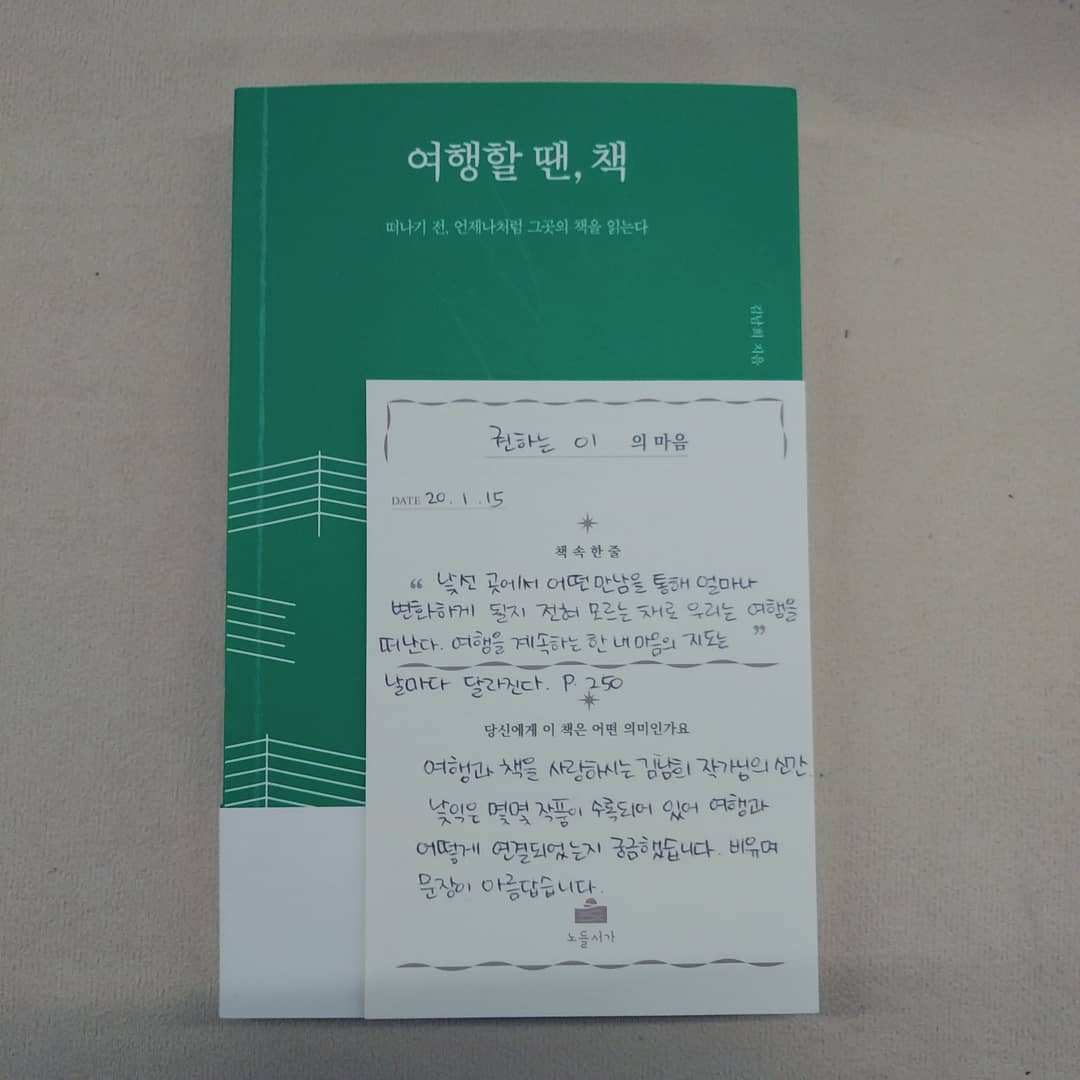 여행할 땐, 책
떠나기 전, 언제나처럼 그곳의 책을 읽는다
김남희 지음
권하는 이 의 마음
DATE 20. 1. 15
책 속 한 줄
“ 낯선 곳에서 어떤 만남을 통해 얼마나
변화하게 될지 전혀 모르는 채로 우리는 여행을
떠난다. 여행을 계속하는 한 내 마음의 지도는 ”
날마다 달라진다. P. 250
당신에게 이 책은 어떤 의미인가요
여행과 책을 사랑하시는 김남희 작가님의 신간.
낯익은 몇몇 작품이 수록되어 있어 여행과
어떻게 연결되었는지 궁금했습니다. 비유며
문장이 아름답습니다.
노들서가